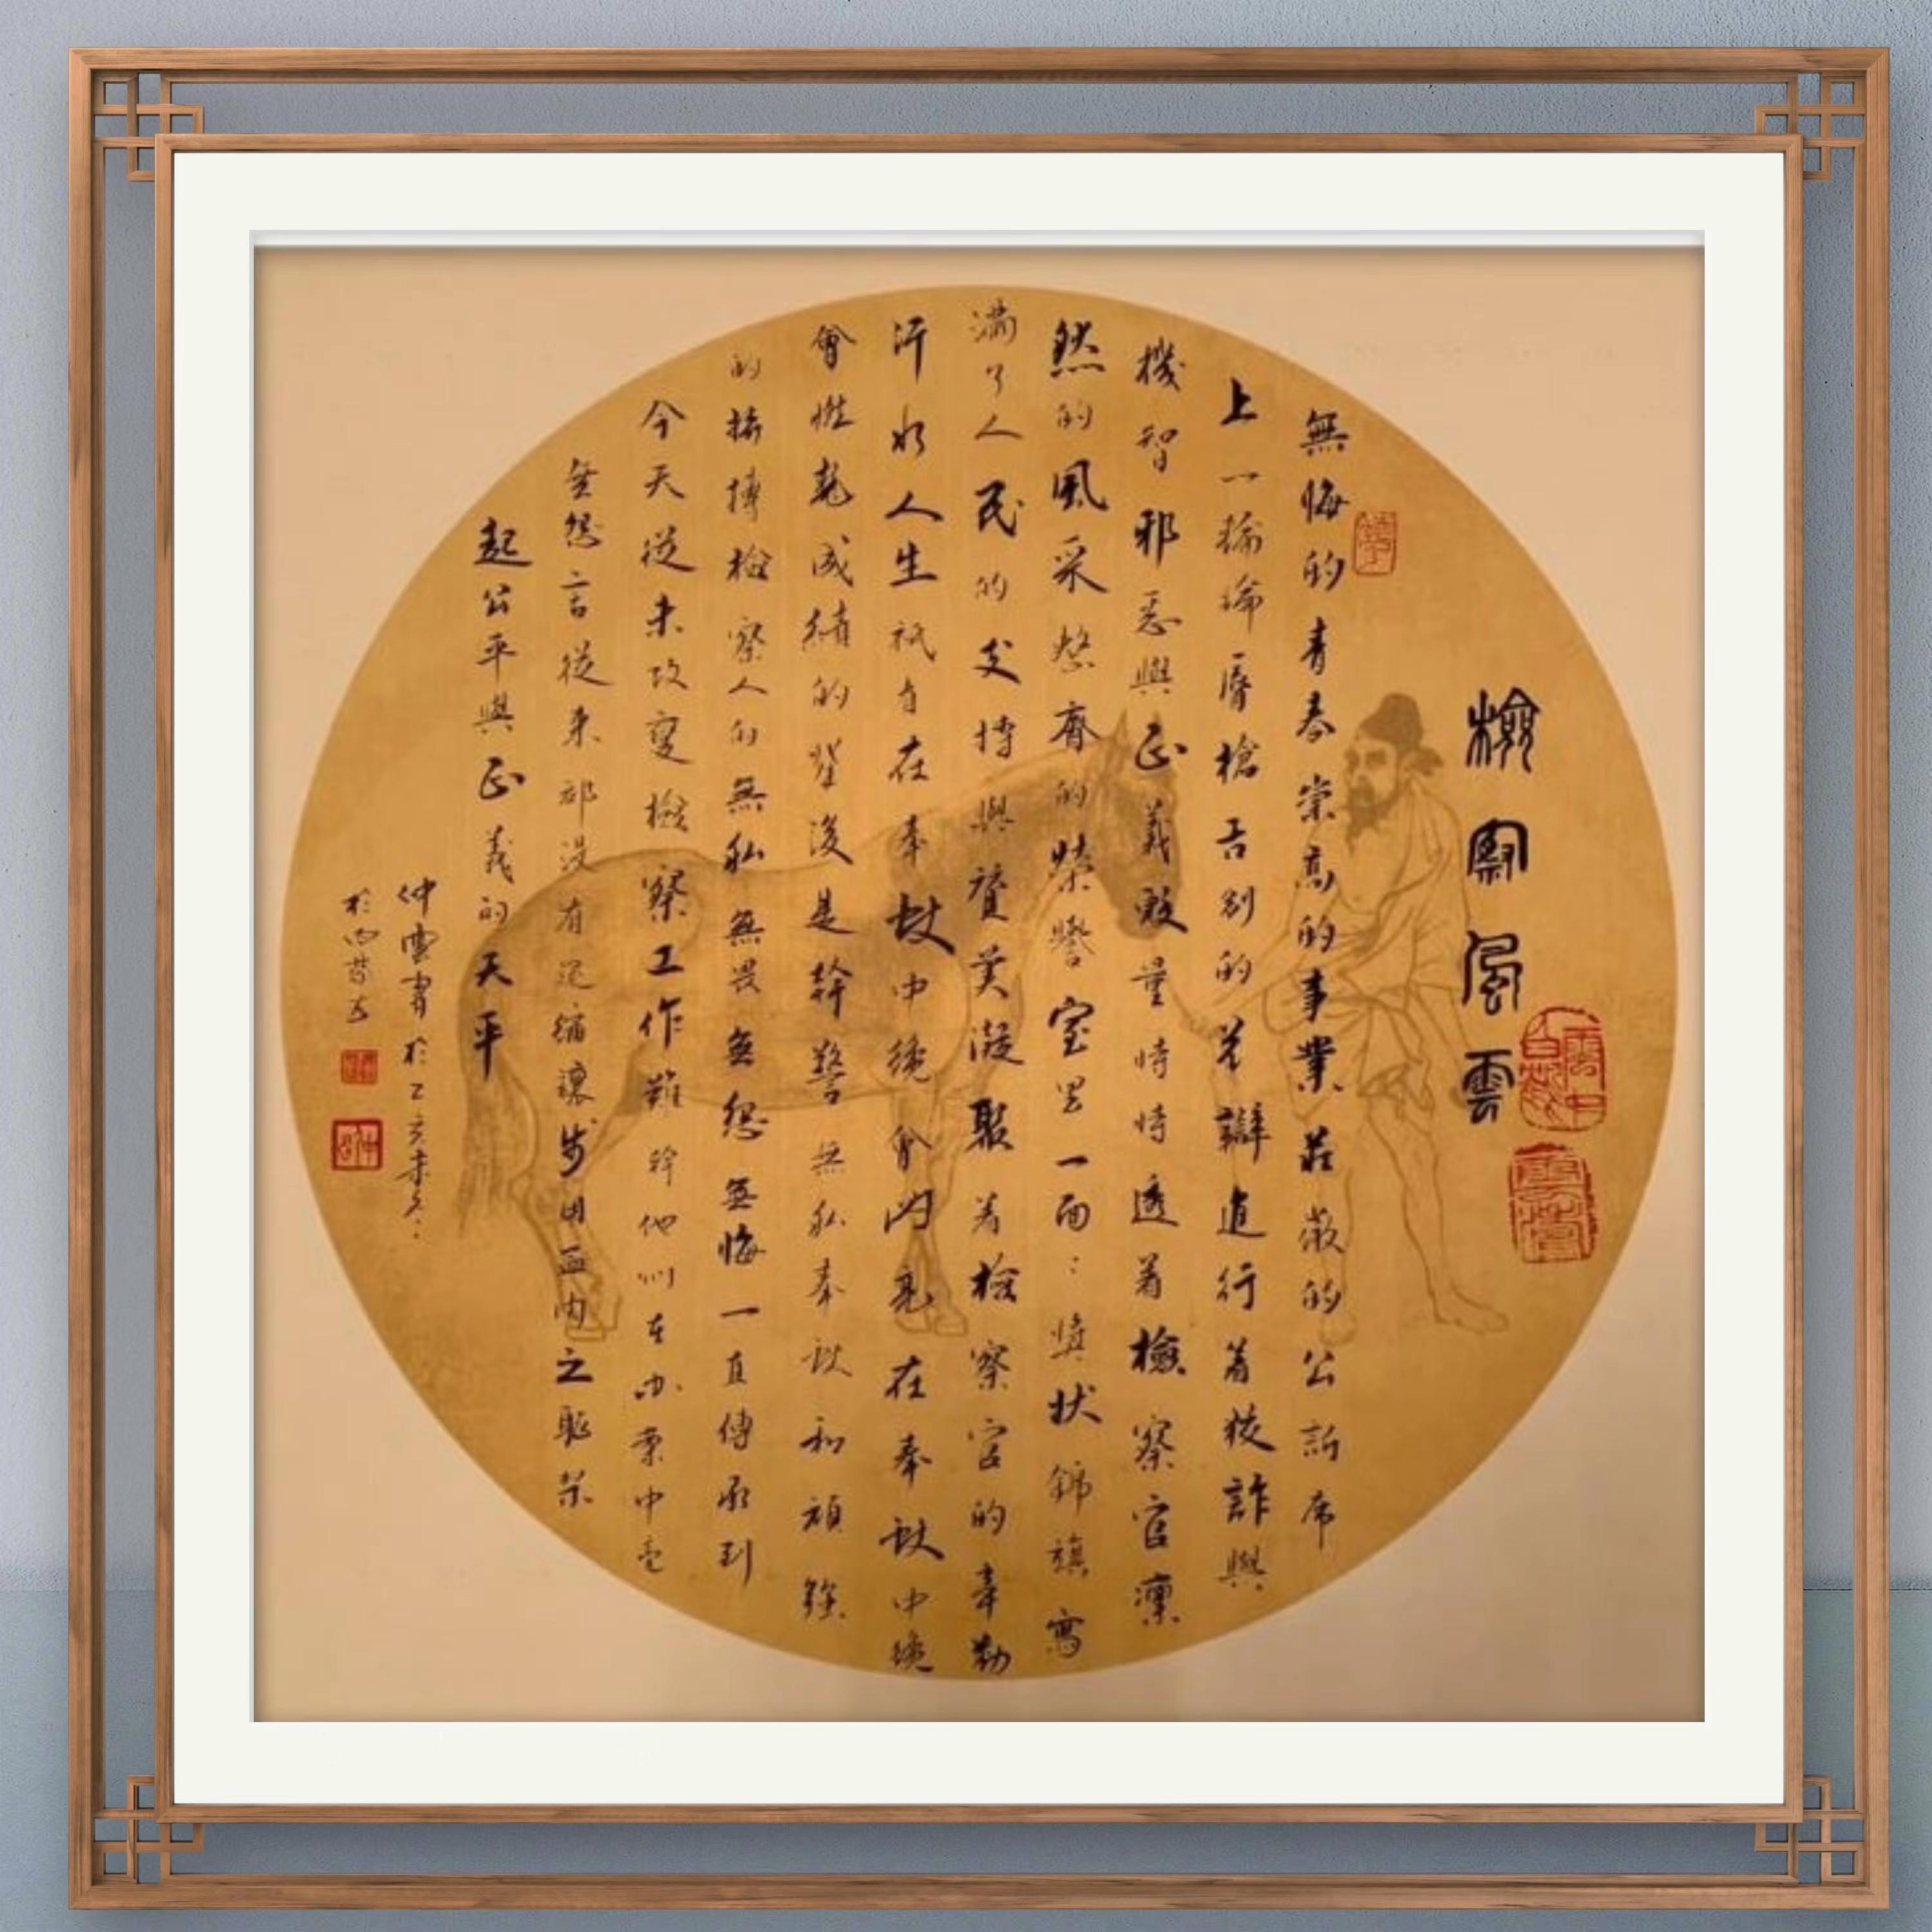 檢察風雲
無悔的青春崇高的事業莊嚴的公訴席
上一輪輪唇槍舌劍的差辯進行着狡詐與
機智邪惡與正義較量時時透着檢察官凜
然的風采整齊的榮譽室里一面：獎狀錦旗寫
滿了人民的支持與贊美凝聚着檢察官的辛勤
汗水人生祇有在奉獻中纔會閃亮在奉獻中纔
會燃乾成績的背後是幹警無私奉獻和頑強
的拚搏檢察人的無私無畏無怨無悔一直傳承到
今天從未改變檢察工作難幹他們在办案中毫
無怨言從來都没有退縮讓步用並肉之軀架
起公平與正義的天平
仲雲書於乙亥